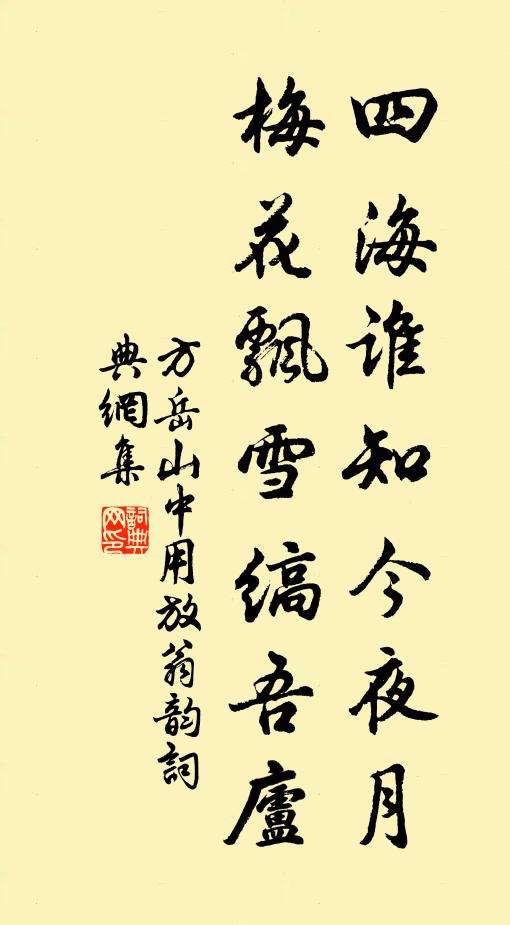 四海誰知今夜月
梅花飄雪縞吾廬
方岳山中用放翁韵詞
典網集
詞典
网印